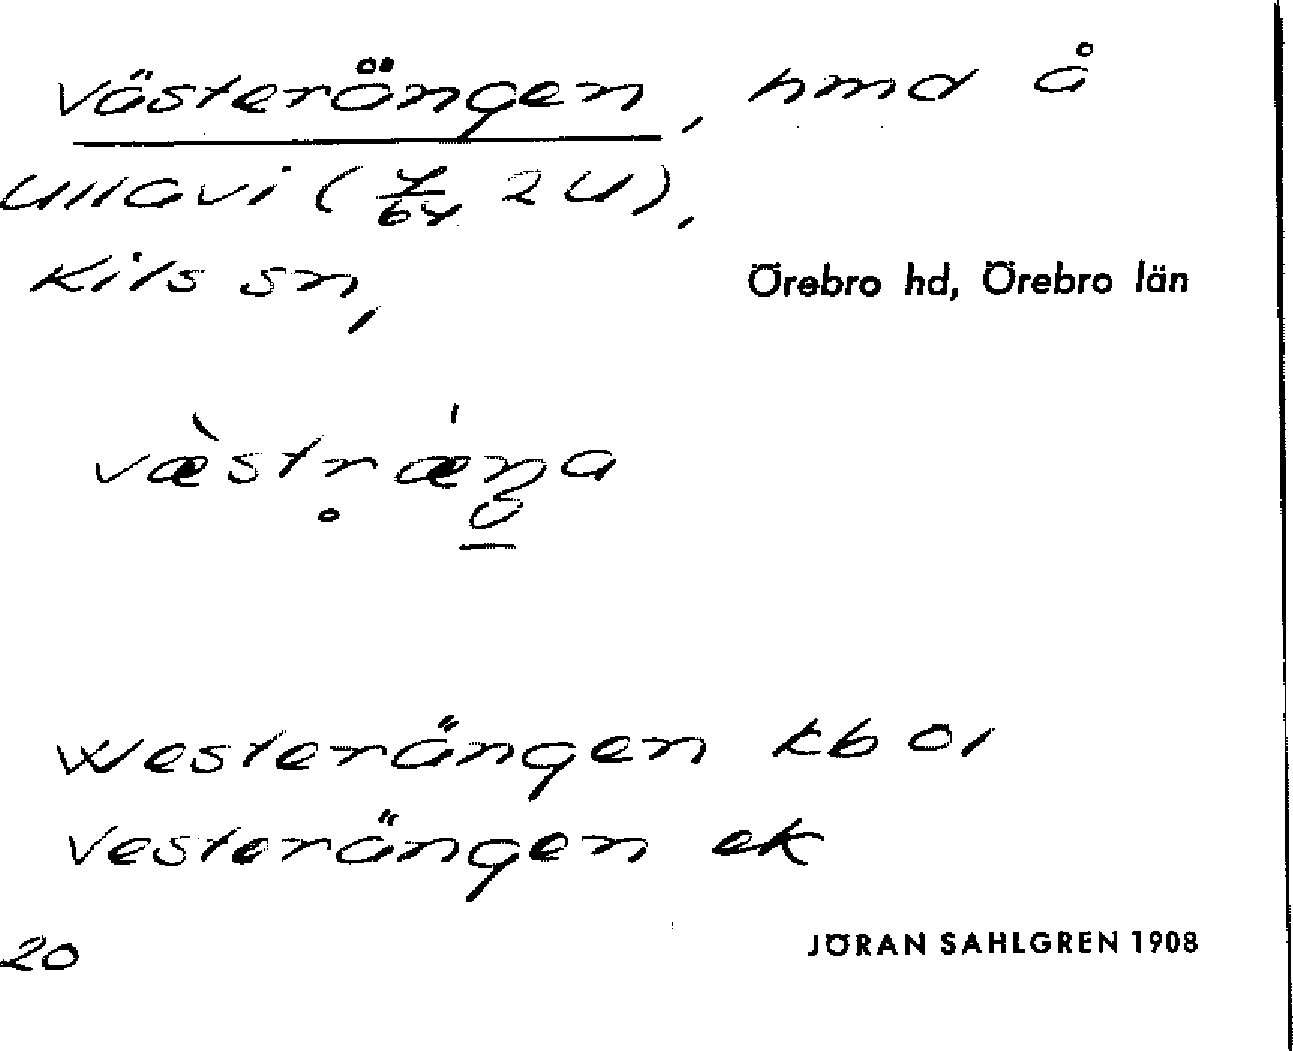 Västerängen, hmd å
Ullavi (7/64 2 U),
Kils sn,
Örebro hd, Örebro län
væ̀str̥ǽŋa
Westerängen kb 01
Vesterängen ek
20
JÖRAN SAHLGREN 1908